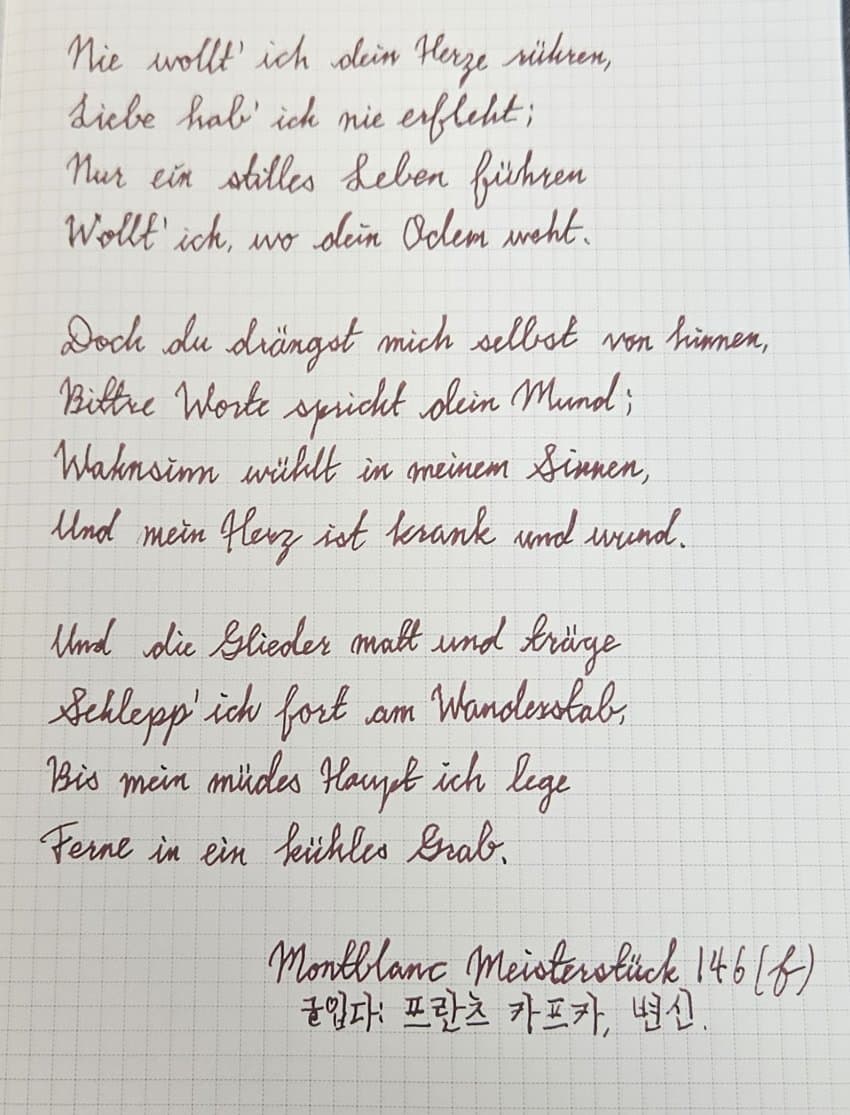 Nie wollt' ich dein Herze rühren,
Liebe hab' ich nie erfleht;
Nur ein stilles Leben führen
Wollt' ich, wo dein Odem weht.
Doch du drängst mich selbst von hinnen,
Bittre Worte spricht dein Mund;
Wahnsinn wühlt in meinem Sinnen,
Und mein Herz ist krank und wund.
Und die Glieder matt und träge
Schlepp' ich fort am Wanderstab,
Bis mein müdes Haupt ich lege
Ferne in ein kühles Grab.
Montblanc Meisterstück 146 (f)
글입다: 프란츠 카프카, 변신.